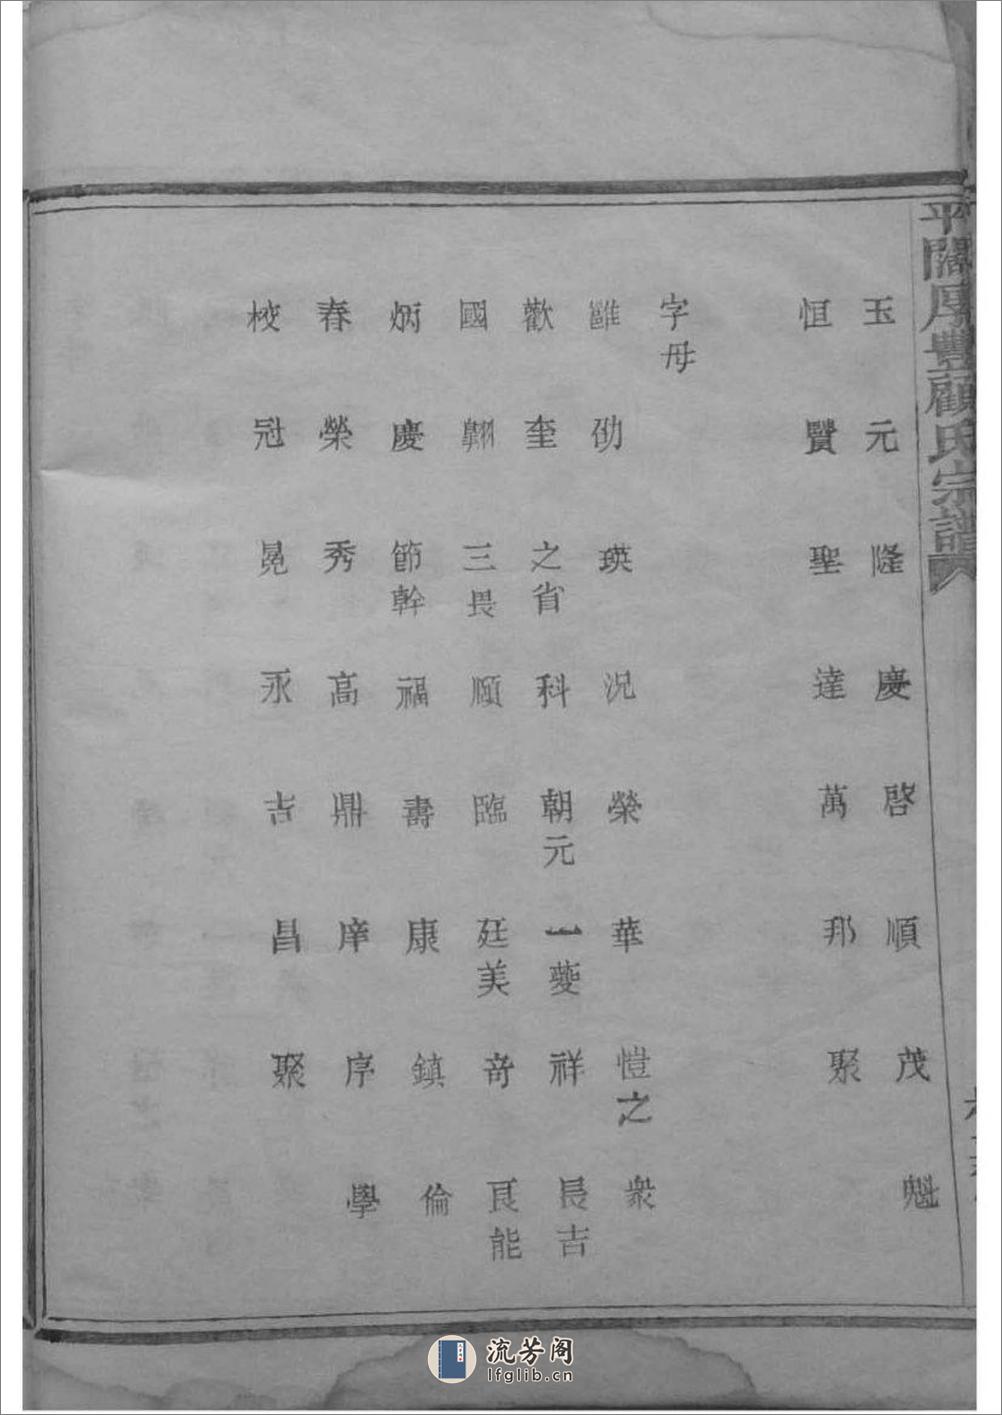 平闍厚豐顧氏宗譜
玉 元 隆 慶 啓 順 茂 魁
恒 賢 聖 達 萬 邦 聚
字母
雝 劭 瑛 況 榮 華 愷之 衆
歡 奎 之省 科 朝元 一夔 祥 長吉
國 翱 三畏 順 臨 廷美 奇 良能
炳 慶 節幹 福 壽 康 鎮 倫
春 榮 秀 高 鼎 庠 序 學
校 冠 冕 永 吉 昌 聚
流芳阁
lfglib.cn